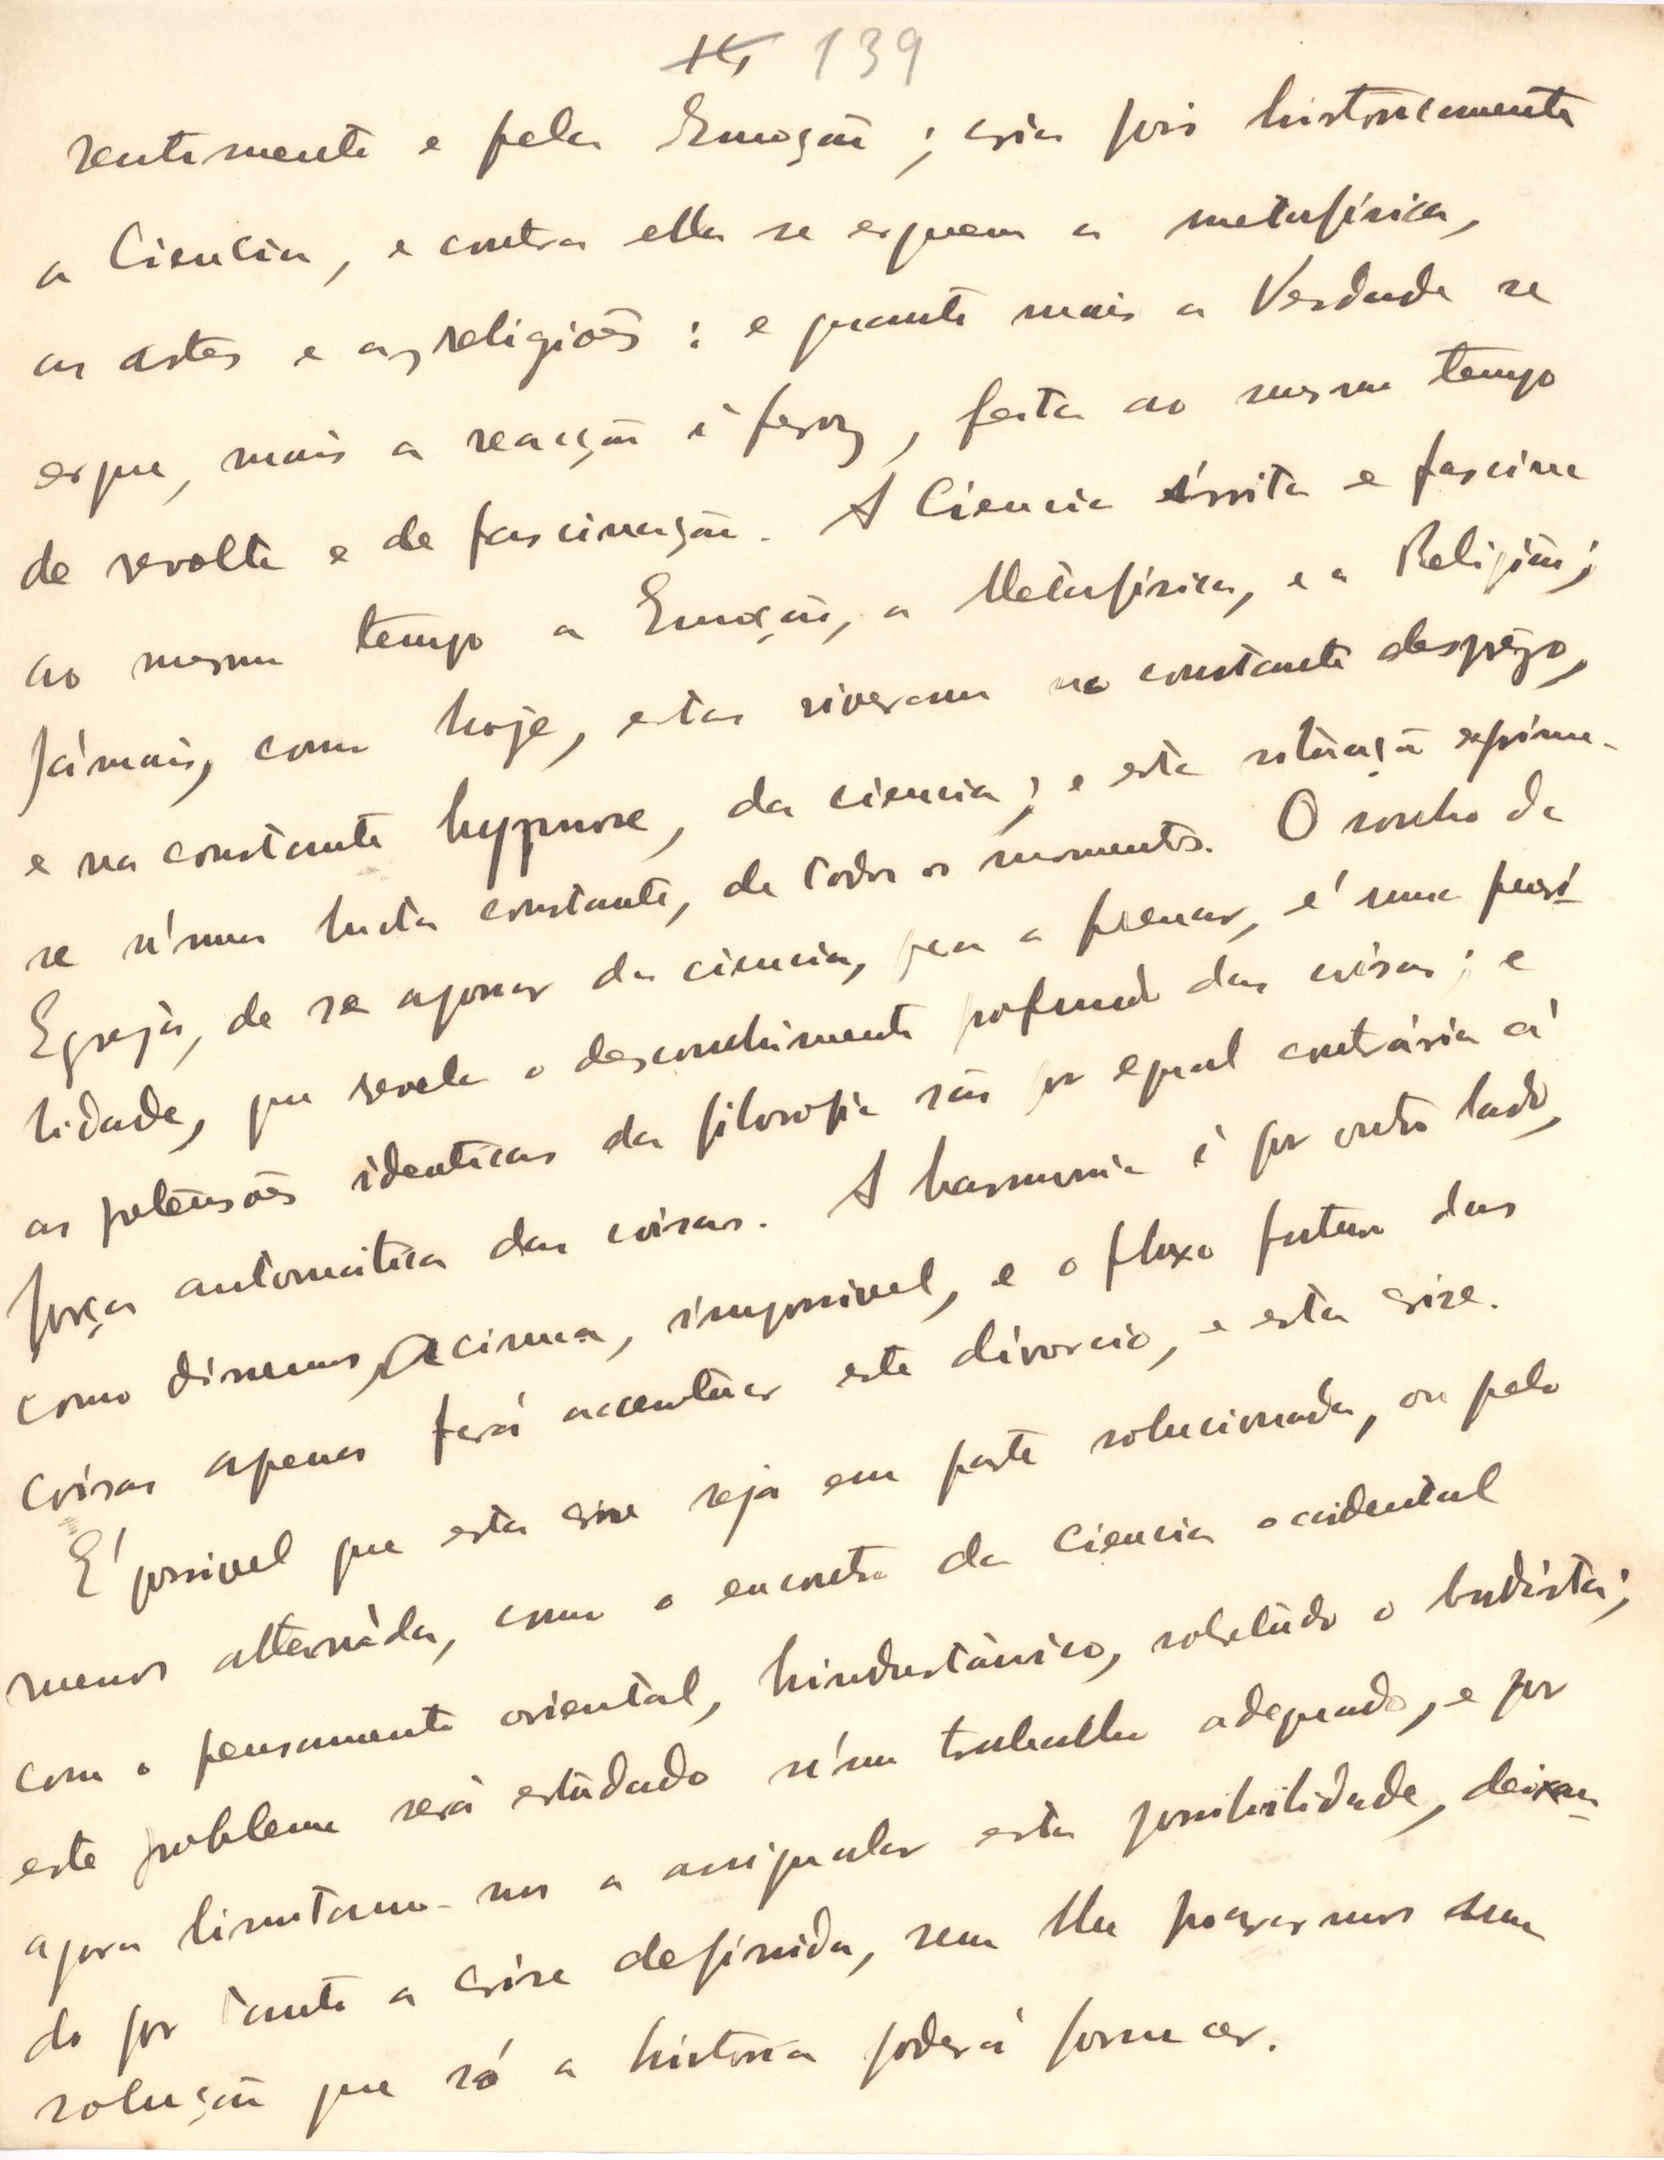 139
sentimento e pela Emoção; cria pois historicamente
a Ciencia, e contra ella se erguem a metafísica,
as artes e as religiões: e quanto mais a Verdade se
ergue, mais a reacção é feroz, feita ao mesmo tempo
de revolta e de fascinação. A Ciencia írrita e fascina
ao mesmo tempo a Emoção, a Metafísica, e a Religião;
Jámais, como hoje, estas viveram no constante desprêzo,
e na constante hypnose, da ciencia; e esta situação exprime-
se n'uma lucta constante, de todos os momentos. O sonho da
Egreja, de se apossar da ciencia, para a frenar, é uma pueri-
lidade, que revela o desconhecimento profundo das coisas; e
as pretensões identicas da filosofia são por egual contrária á
força automática das coisas. A harmonia é por outro lado,
como dissemos acima, impossivel, e o fluxo futuro das
coisas apenas fará accentuar este divorcio, e esta crise.
É possivel que esta crise seja em parte solucionada, ou pelo
menos alternáda, com o encontro da Ciencia occidental
com o pensamento oriental, hindustânico, sobretúdo o budista;
este problema será estúdado n'um trabalho adequado, e por
agora limitamo-nos a assignalar esta possibilidade, deixan-
do por tanto a crise definida, sem lhe procurarmos uma
solução que só a historia poderá fornecer.